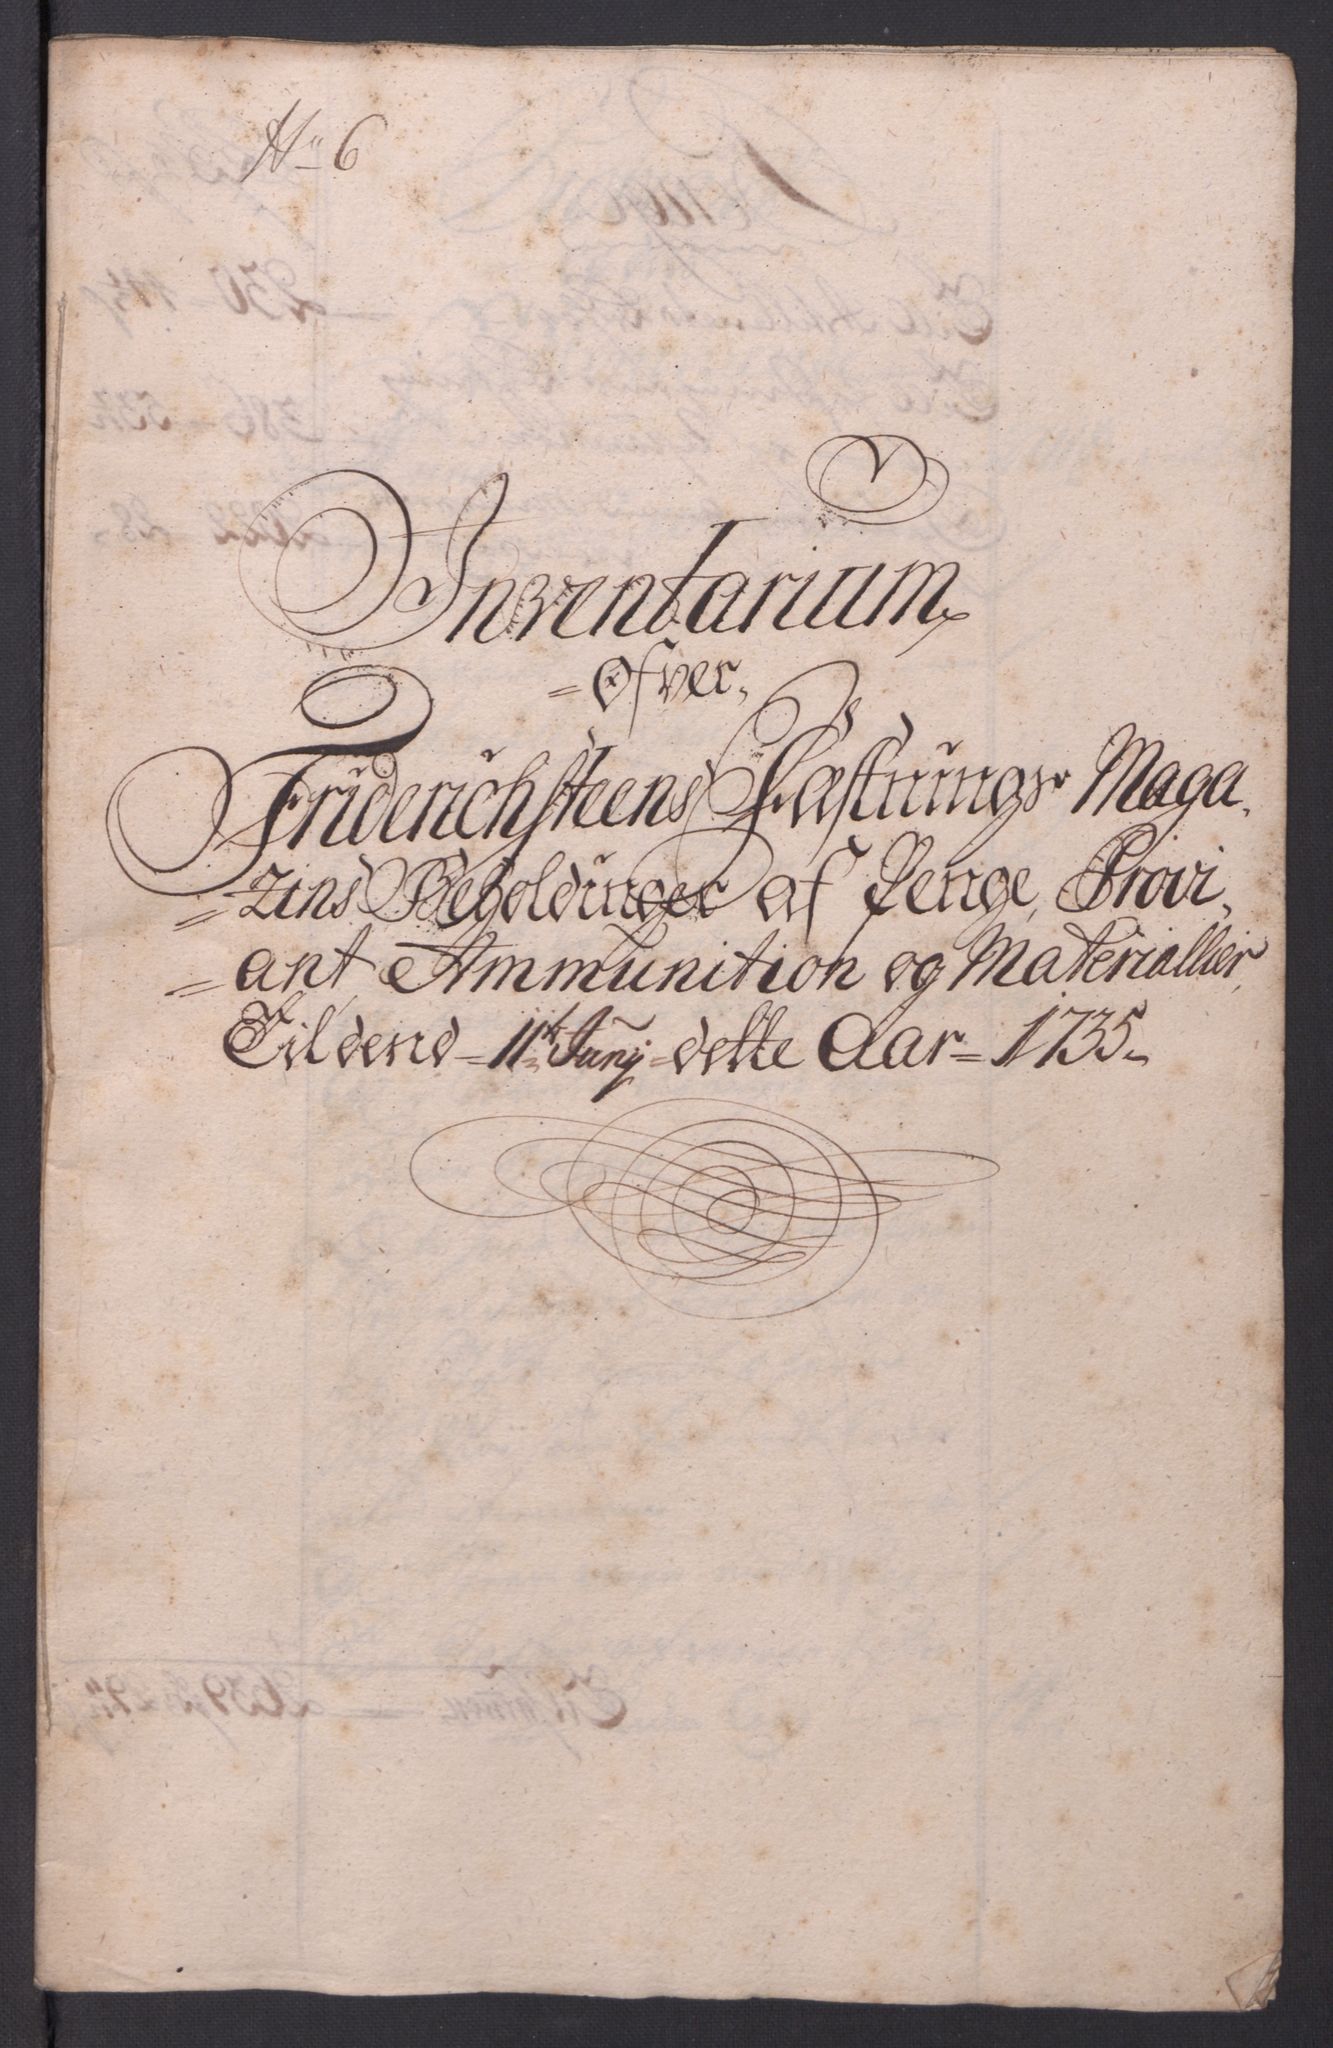 No 6
Inventarium
= Ofver,
Friderichsteens Fæstnings Maga,
= zins Beholdinger af Penge, Provi,
= ant, Ammunition og Materiallier,
Til dend = 11te Junij = dette Aar = 1735.